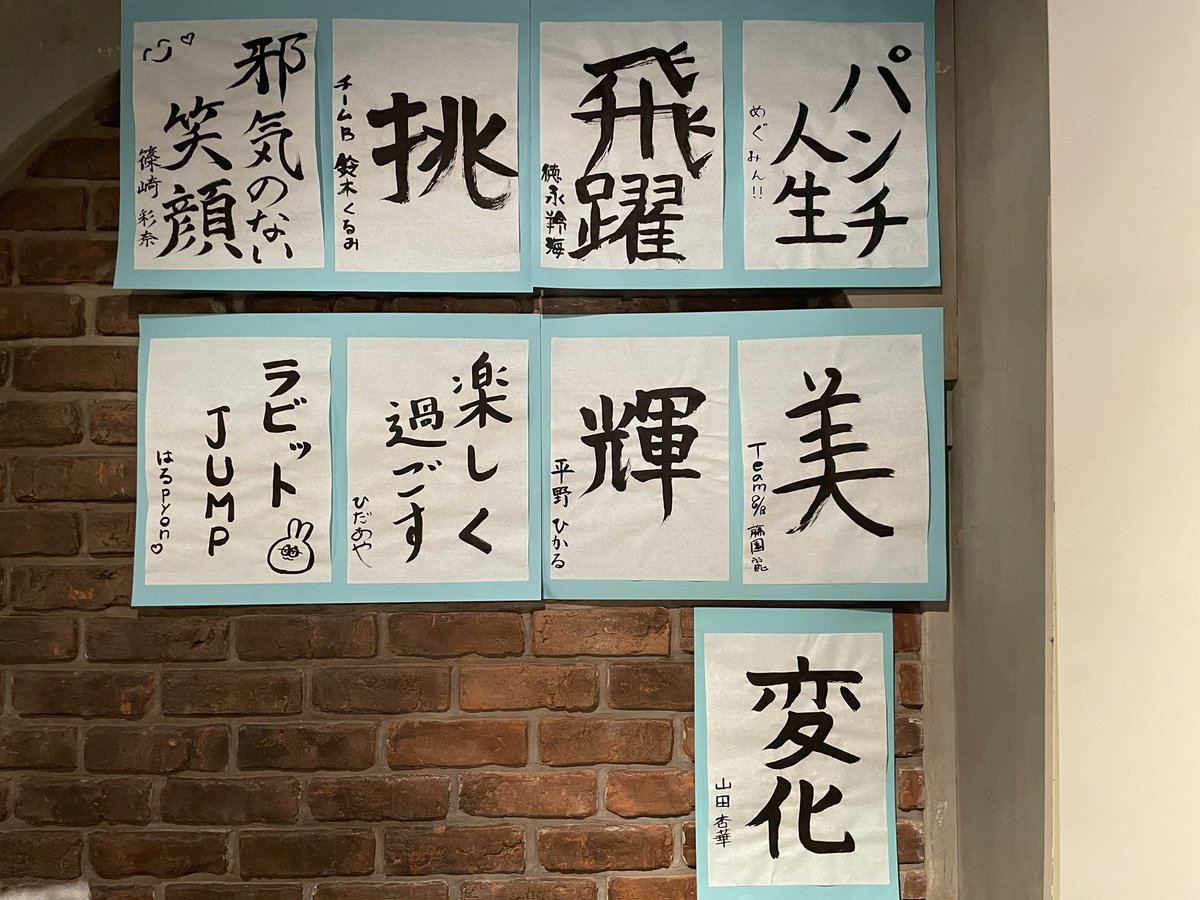 パンチ
人生
めぐみん!!
飛躍
徳永羚海
挑
チームB 鈴木くるみ
邪気のない
笑顔
篠崎 彩奈
美
Team8/B 藤園麗
輝
平野 ひかる
楽しく
過ごす
ひだあや
ラビット
JUMP
はるpyon♡
変化
山田杏華